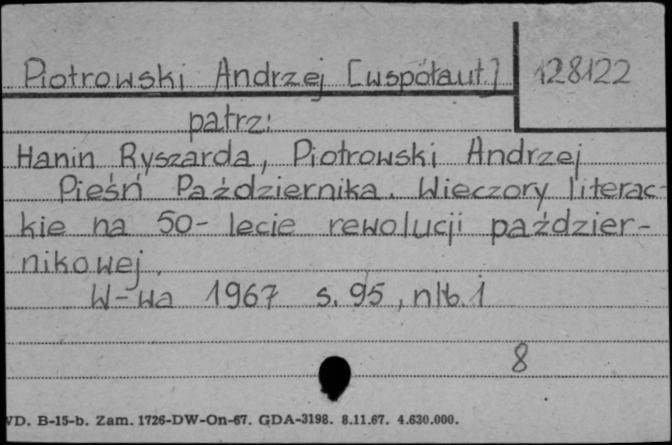 Piotrowski Andrzej [współaut.] 128122
patrz:
Hanin Ryszarda, Piotrowski Andrzej
Pieśń Października. Wieczory literac-
kie na 50-lecie rewolucji paździer-
nikowej.
W-wa 1967 s. 95, nlb. 1
8
VD. B-15-b. Zam. 1726-DW-On-67. GDA-3198. 8.11.67. 4.630.000.